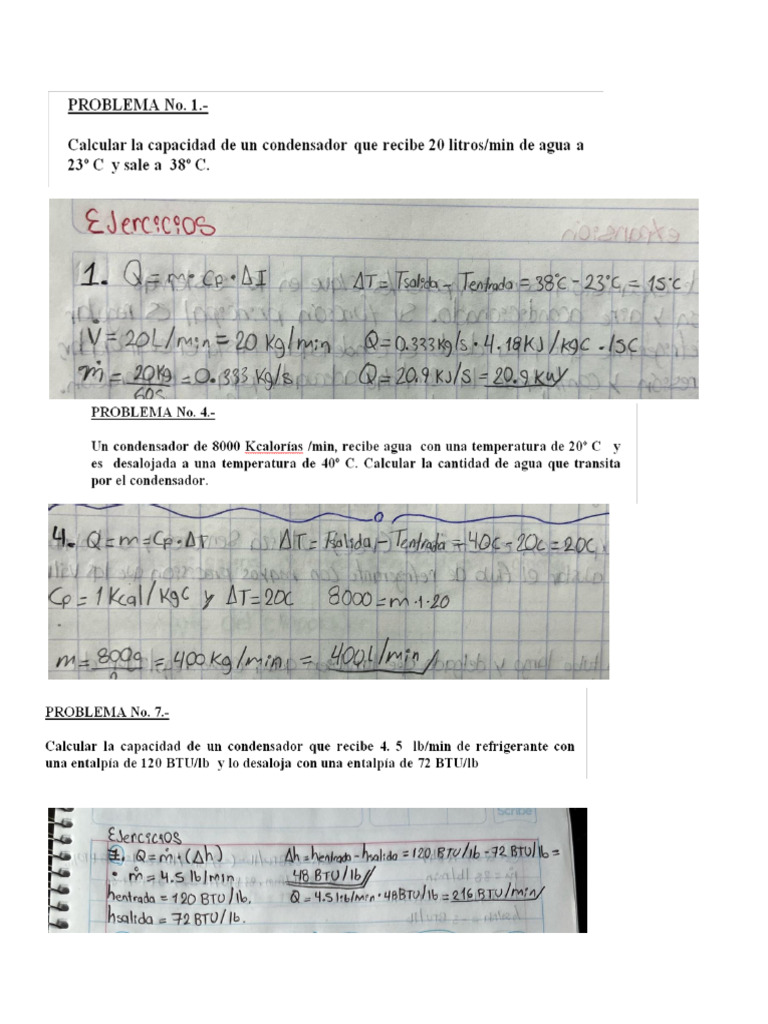 PROBLEMA No. 1.-
Calcular la capacidad de un condensador que recibe 20 litros/min de agua a
23º C y sale a 38º C.
Ejercicios
1. Q = m · Cp · ΔI ΔT = Tsalida - Tentrada = 38°C - 23°C = 15°C
V = 20L/min = 20 kg/min Q = 0.333kg/s · 4.18KJ/kgC · 15C
ṁ = 20Kg = 0.333 Kg/s Q = 20.9 KJ/S = 20.9 KW
60s
PROBLEMA No. 4.-
Un condensador de 8000 Kcalorías /min, recibe agua con una temperatura de 20º C y
es desalojada a una temperatura de 40º C. Calcular la cantidad de agua que transita
por el condensador.
4. Q = m = Cp · ΔT ΔT = Tsalida - Tentrada = 40C - 20C = 20C
Cp = 1 Kcal/KgC y ΔT = 20C 8000 = m · 1 · 20
m = 8000 = 400 Kg/min = 400L/min
PROBLEMA No. 7.-
Calcular la capacidad de un condensador que recibe 4. 5 lb/min de refrigerante con
una entalpía de 120 BTU/lb y lo desaloja con una entalpía de 72 BTU/lb
Scribe
Ejercicios
7. Q = ṁ · (Δh) Δh = hentrada - hsalida = 120 BTU/lb - 72 BTU/lb =
· ṁ = 4.5 lb/min 48 BTU/lb
hentrada = 120 BTU/lb. Q = 4.5 lb/min · 48BTU/lb = 216 BTU/min
hsalida = 72 BTU/lb.